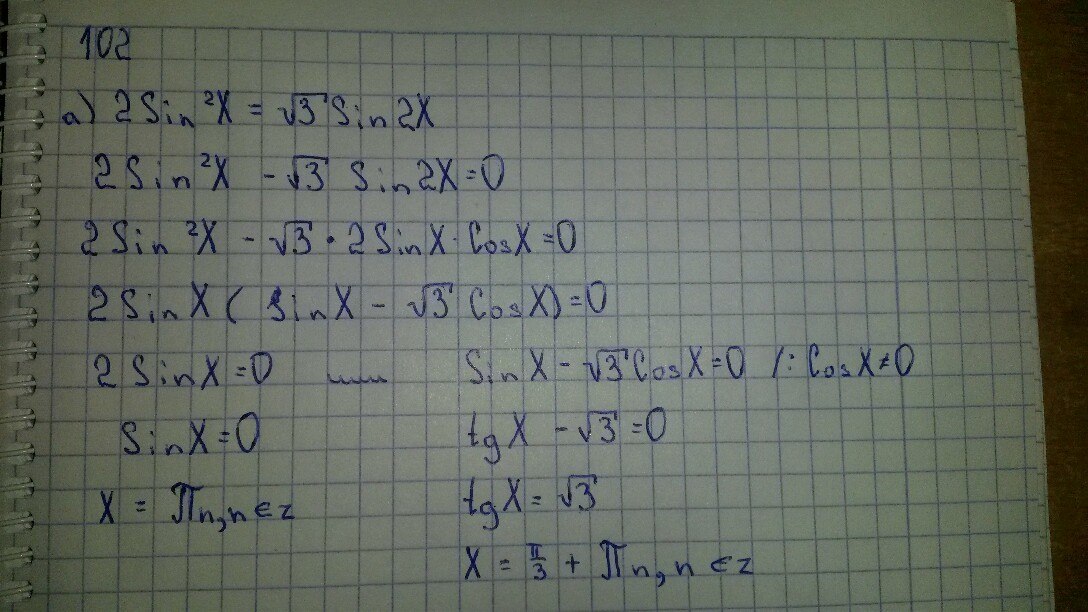 102
а) 2Sin²X = √3 Sin2X
2Sin²X - √3 Sin2X=0
2Sin²X - √3 · 2SinX · CosX=0
2SinX( SinX - √3 CosX)=0
2SinX=0 или SinX - √3CosX=0 /: CosX≠0
SinX=0 tgX - √3=0
X = πn, n∈z tgX = √3
X = π/3 + πn, n∈z